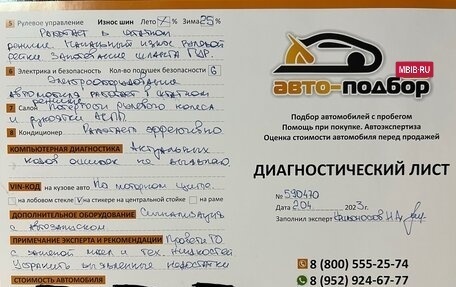 5 Рулевое управление Износ шин Лето % Зима 25%
Работает в штатном
режиме. Начальный износ рулевой
рейки. Запотевание шланга ГУР.
6 Электрика и безопасность Кол-во подушек безопасности 6
Электрооборудование
автомобиля работает в штатном
режиме
7 Салон Потертости рулевого колеса
и рукоятки АКПП.
8 Кондиционер Работает эффективно
КОМПЬЮТЕРНАЯ ДИАГНОСТИКА Актуальных
кодов ошибок не выявлено
VIN-КОД на кузове авто На моторном щите.
на лобовом стекле V на стикере на центральной стойке На раме
ДОПОЛНИТЕЛЬНОЕ ОБОРУДОВАНИЕ Сигнализация
с автозапуском
ПРИМЕЧАНИЕ ЭКСПЕРТА И РЕКОМЕНДАЦИИ Провести ТО
с заменой масел и тех. жидкостей
Устранить выявленные недостатки
СТОИМОСТЬ АВТОМОБИЛЯ
MBIB.RU
авто-подбор
Подбор автомобилей с пробегом
Помощь при покупке. Автоэкспертиза
Оценка стоимости автомобиля перед продажей
ДИАГНОСТИЧЕСКИЙ ЛИСТ
№ 590470
Дата 2.04 2023г.
Заполнил эксперт
8 (800) 555-25-74
8 (952) 924-67-77